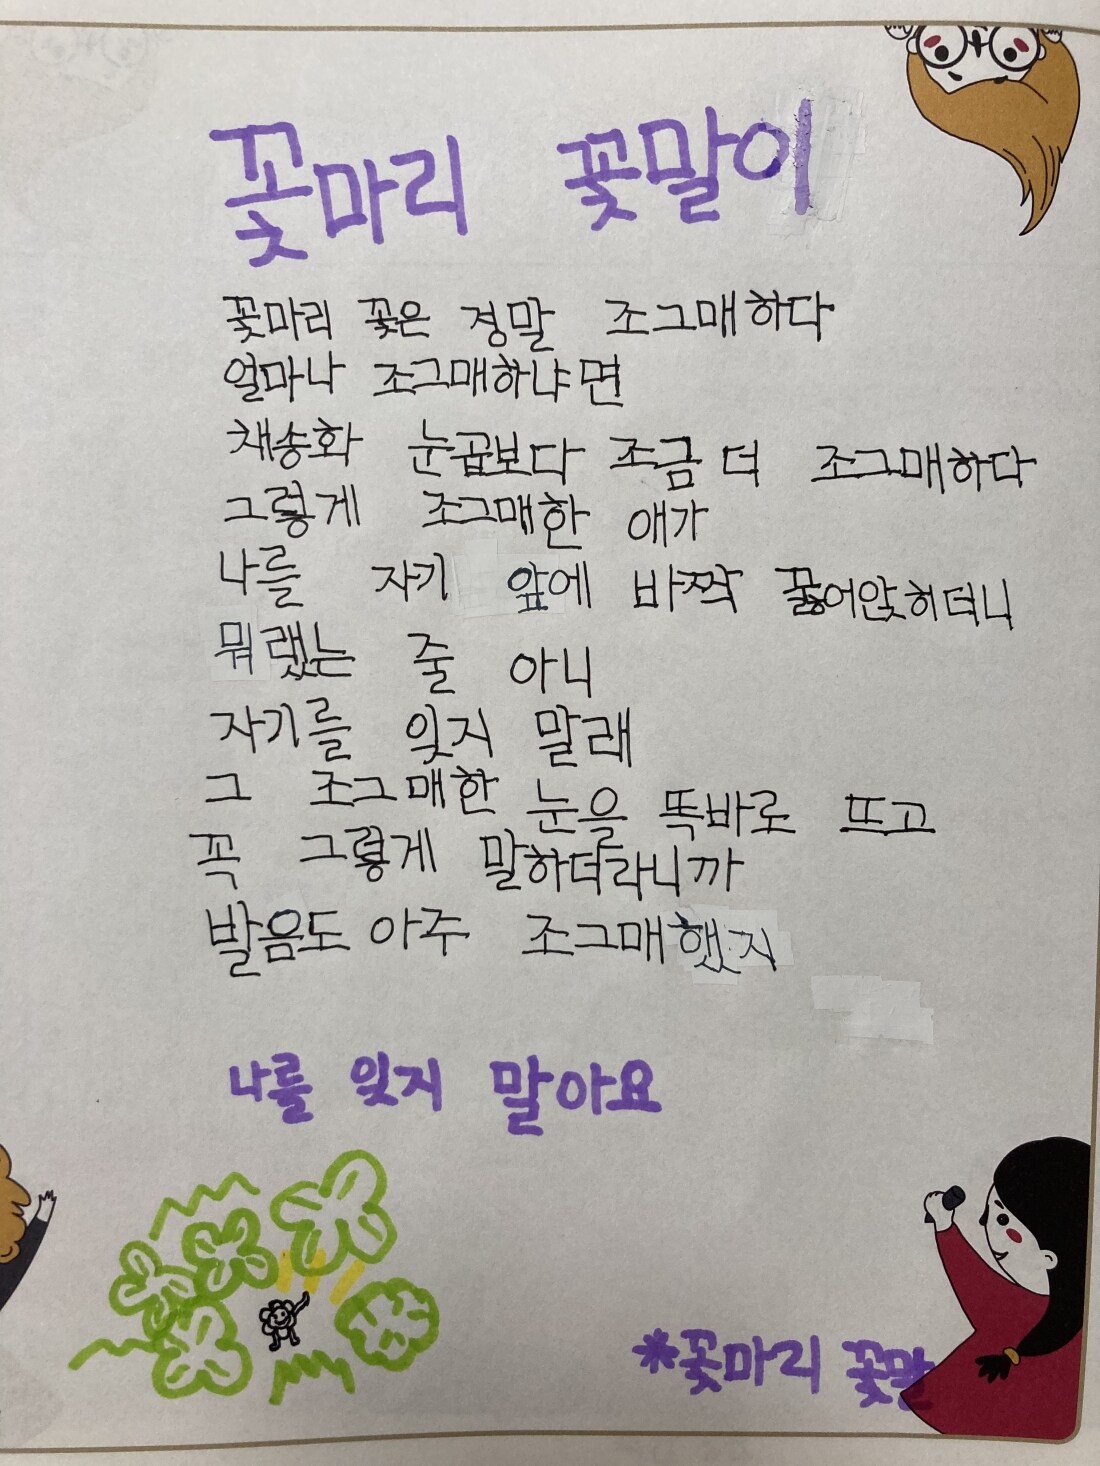 꽃마리 꽃말이
꽃마리 꽃은 정말 조그매하다
얼마나 조그매하냐면
채송화 눈곱보다 조금 더 조그매하다
그렇게 조그매한 애가
나를 자기 앞에 바짝 꿇어앉히더니
뭐랬는 줄 아니
자기를 잊지 말래
그 조그매한 눈을 똑바로 뜨고
꼭 그렇게 말하더라니까
발음도 아주 조그매했지
나를 잊지 말아요
*꽃마리 꽃말